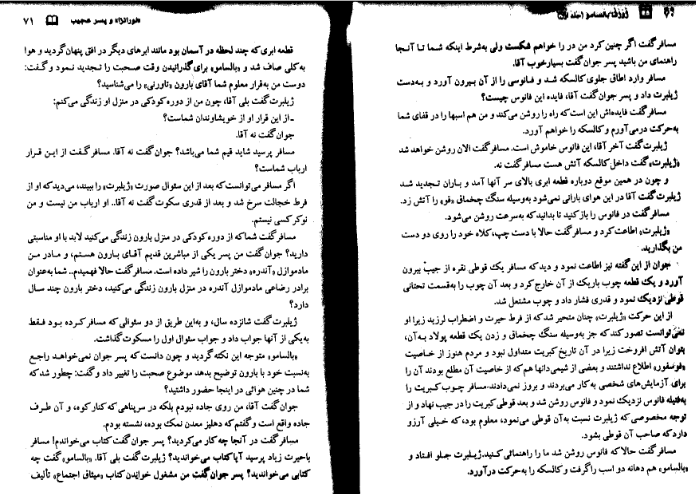 ژوزف بالسامو (جلد اول)
مسافر گفت اگر چنین کرد من در را خواهم شکست ولی به‌شرط اینکه شما تا آنجا
راهنمای من باشید پسر جوان گفت بسیار خوب آقا.
مسافر وارد اطاق جلوی کالسکه شد و فانوسی را از آن بیرون آورد و به‌دست
ژیلبرت داد و پسر جوان گفت آقا، فایده این فانوس چیست؟
مسافر گفت فایده‌اش این است که راه را روشن می‌کند و من هم اسبها را در قفای شما
به‌حرکت درمی‌آورم و کالسکه را خواهم آورد.
ژیلبرت گفت آخر آقا، این فانوس خاموش است. مسافر گفت الان روشن خواهد شد
«ژیلبرت» گفت داخل کالسکه آتش هست مسافر گفت نه.
و چون در همین موقع دوباره قطعه ابری بالای سر آنها آمد و باران تجدید شد
ژیلبرت گفت آقا در این هوای بارانی نمی‌شود به‌وسیله سنگ چخماق «قو» را آتش زد.
مسافر گفت در فانوس را باز کنید تا بدانید که به‌سرعت روشن می‌شود.
«ژیلبرت» اطاعت کرد و مسافر گفت حالا با دست چپ، کلاه خود را روی دو دست
من بگذارید.
جوان از این گفته نیز اطاعت نمود و دید که مسافر یک قوطی نقره از جیب بیرون
آورد و یک قطعه چوب باریک از آن خارج کرد و بعد آن چوب را به‌قسمت تحتانی
قوطی نزدیک نمود و قدری فشار داد و چوب مشتعل شد.
از این حرکت «ژیلبرت» چنان متحیر شد که از فرط حیرت و اضطراب لرزید زیرا او
نمی‌توانست تصور کند که جز به‌وسیله سنگ چخماق و زدن یک قطعه پولاد به‌آن،
بتوان آتش افروخت زیرا در آن تاریخ کبریت متداول نبود و مردم هنوز از خاصیت
«فوسفور» اطلاع نداشتند و بعضی از شیمی‌دانها هم که از خاصیت آن مطلع بودند آن را
برای آزمایش‌های شخصی به‌کار می‌بردند و بروز نمی‌دادند. مسافر چوب کبریت را
به‌فتیله فانوس نزدیک نمود و فانوس روشن شد و بعد قوطی کبریت را در جیب نهاد و از
توجه مخصوصی که ژیلبرت نسبت به‌آن قوطی می‌نمود، معلوم بود، که خیلی آرزو
دارد که صاحب آن قوطی بشود.
مسافر گفت حالا که فانوس روشن شد ما را راهنمائی کنید. ژیلبرت جلو افتاد و
«بالسامو» هم دهانه دو اسب را گرفت و کالسکه را به‌حرکت درآورد.
و پسر عجیب ۷۱
قطعه ابری که چند لحظه در آسمان بود مانند ابرهای دیگر در افق پنهان گردید و هوا
به‌کلی صاف شد و «بالسامو» برای گذرانیدن وقت صحبت را تجدید نمود و گفت:
دوست من به‌قرار معلوم شما آقای بارون «تاورنی» را می‌شناسید؟
ژیلبرت گفت بلی آقا، چون من از دوره کودکی در منزل او زندگی می‌کنم:
ـ از این قرار او از خویشاوندان شماست؟
جوان گفت نه آقا.
مسافر پرسید شاید قیم شما می‌باشد؟ جوان گفت نه آقا. مسافر گفت از این قرار
ارباب شماست؟
اگر مسافر می‌توانست که بعد از این سئوال صورت «ژیلبرت» را ببیند، می‌دید که او از
فرط خجالت سرخ شد و بعد از قدری سکوت گفت نه آقا.. او ارباب من نیست و من
نوکر کسی نیستم.
مسافر گفت شما که از دوره کودکی در منزل بارون زندگی می‌کنید لابد با او مناسبتی
دارید؟ جوان گفت من پسر یکی از مباشرین قدیم آقای بارون هستم، و مادر من
مادموازل «آندره» دختر بارون را شیر داده است. مسافر گفت حالا فهمیدم.. شما به‌عنوان
برادر رضاعی مادموازل آندره در منزل بارون زندگی می‌کنید، دختر بارون چند سال
دارد؟
ژیلبرت گفت شانزده سال، و به‌این طریق از دو سئوالی که مسافر کرده بود فقط
به‌یکی از آنها جواب داد و جواب سئوال اول را مسکوت گذاشت.
«بالسامو» متوجه این نکته گردید و چون دانست که پسر جوان نمی‌خواهد راجع
به‌نسبت خود با بارون توضیح بدهد موضوع صحبت را تغییر داد و گفت: چطور شد که
شما در چنین هوائی در اینجا حضور داشتید؟
جوان گفت آقا، من روی جاده نبودم بلکه در سرپناهی که کنار کوه، و آن طرف
جاده واقع است و گفتم که دهلیز معدن نمک بوده، نشسته بودم.
مسافر گفت در آنجا چه کار می‌کردید؟ پسر جوان گفت کتاب می‌خواندم! مسافر
باحیرت زیاد پرسید آیا کتاب می‌خواندید؟ ژیلبرت گفت بلی آقا. «بالسامو» گفت چه
کتابی می‌خواندید؟ پسر جوان گفت من مشغول خواندن کتاب «میثاق اجتماع» تألیف